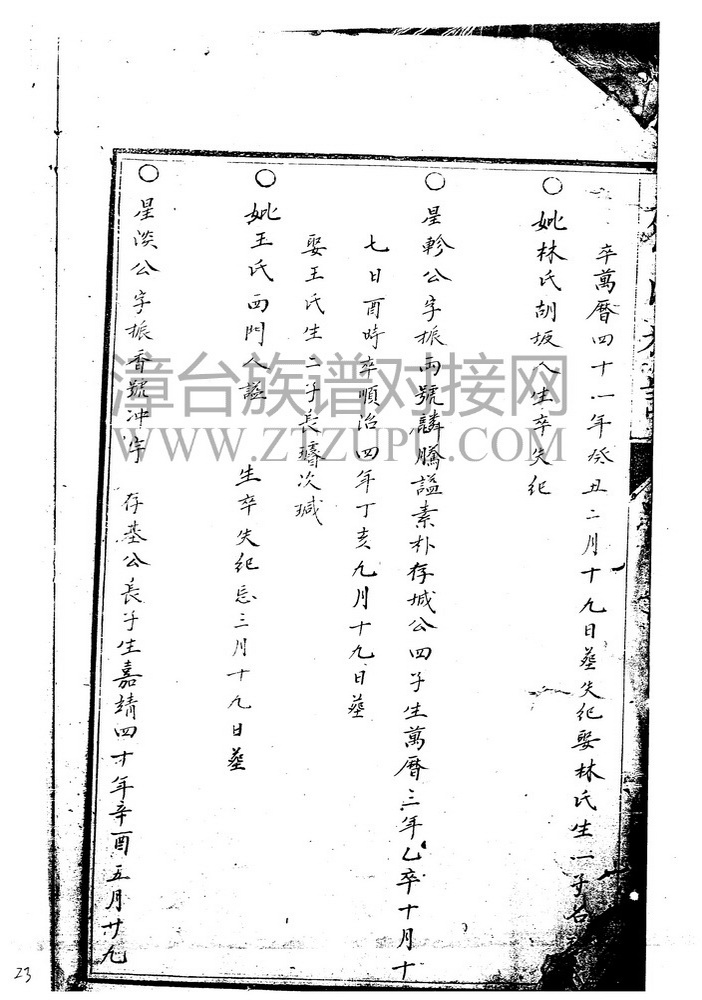 卒萬曆四十一年癸丑二月十九日葬失紀娶林氏生一子台
○妣林氏胡坂人生卒失紀
○星軫公字振雨號麟騰謚素朴存城公四子生萬曆三年乙卒十月十
七日酉時卒順治四年丁亥九月十九日葬
娶王氏生二子長璹次珹
○妣王氏西門人謚 生卒失紀忌三月十九日葬
○星淡公字振香號冲宇 存基公長子生嘉靖四十年辛酉五月廿九
漳台族谱对接网
WWW.ZTZUPU.COM
23